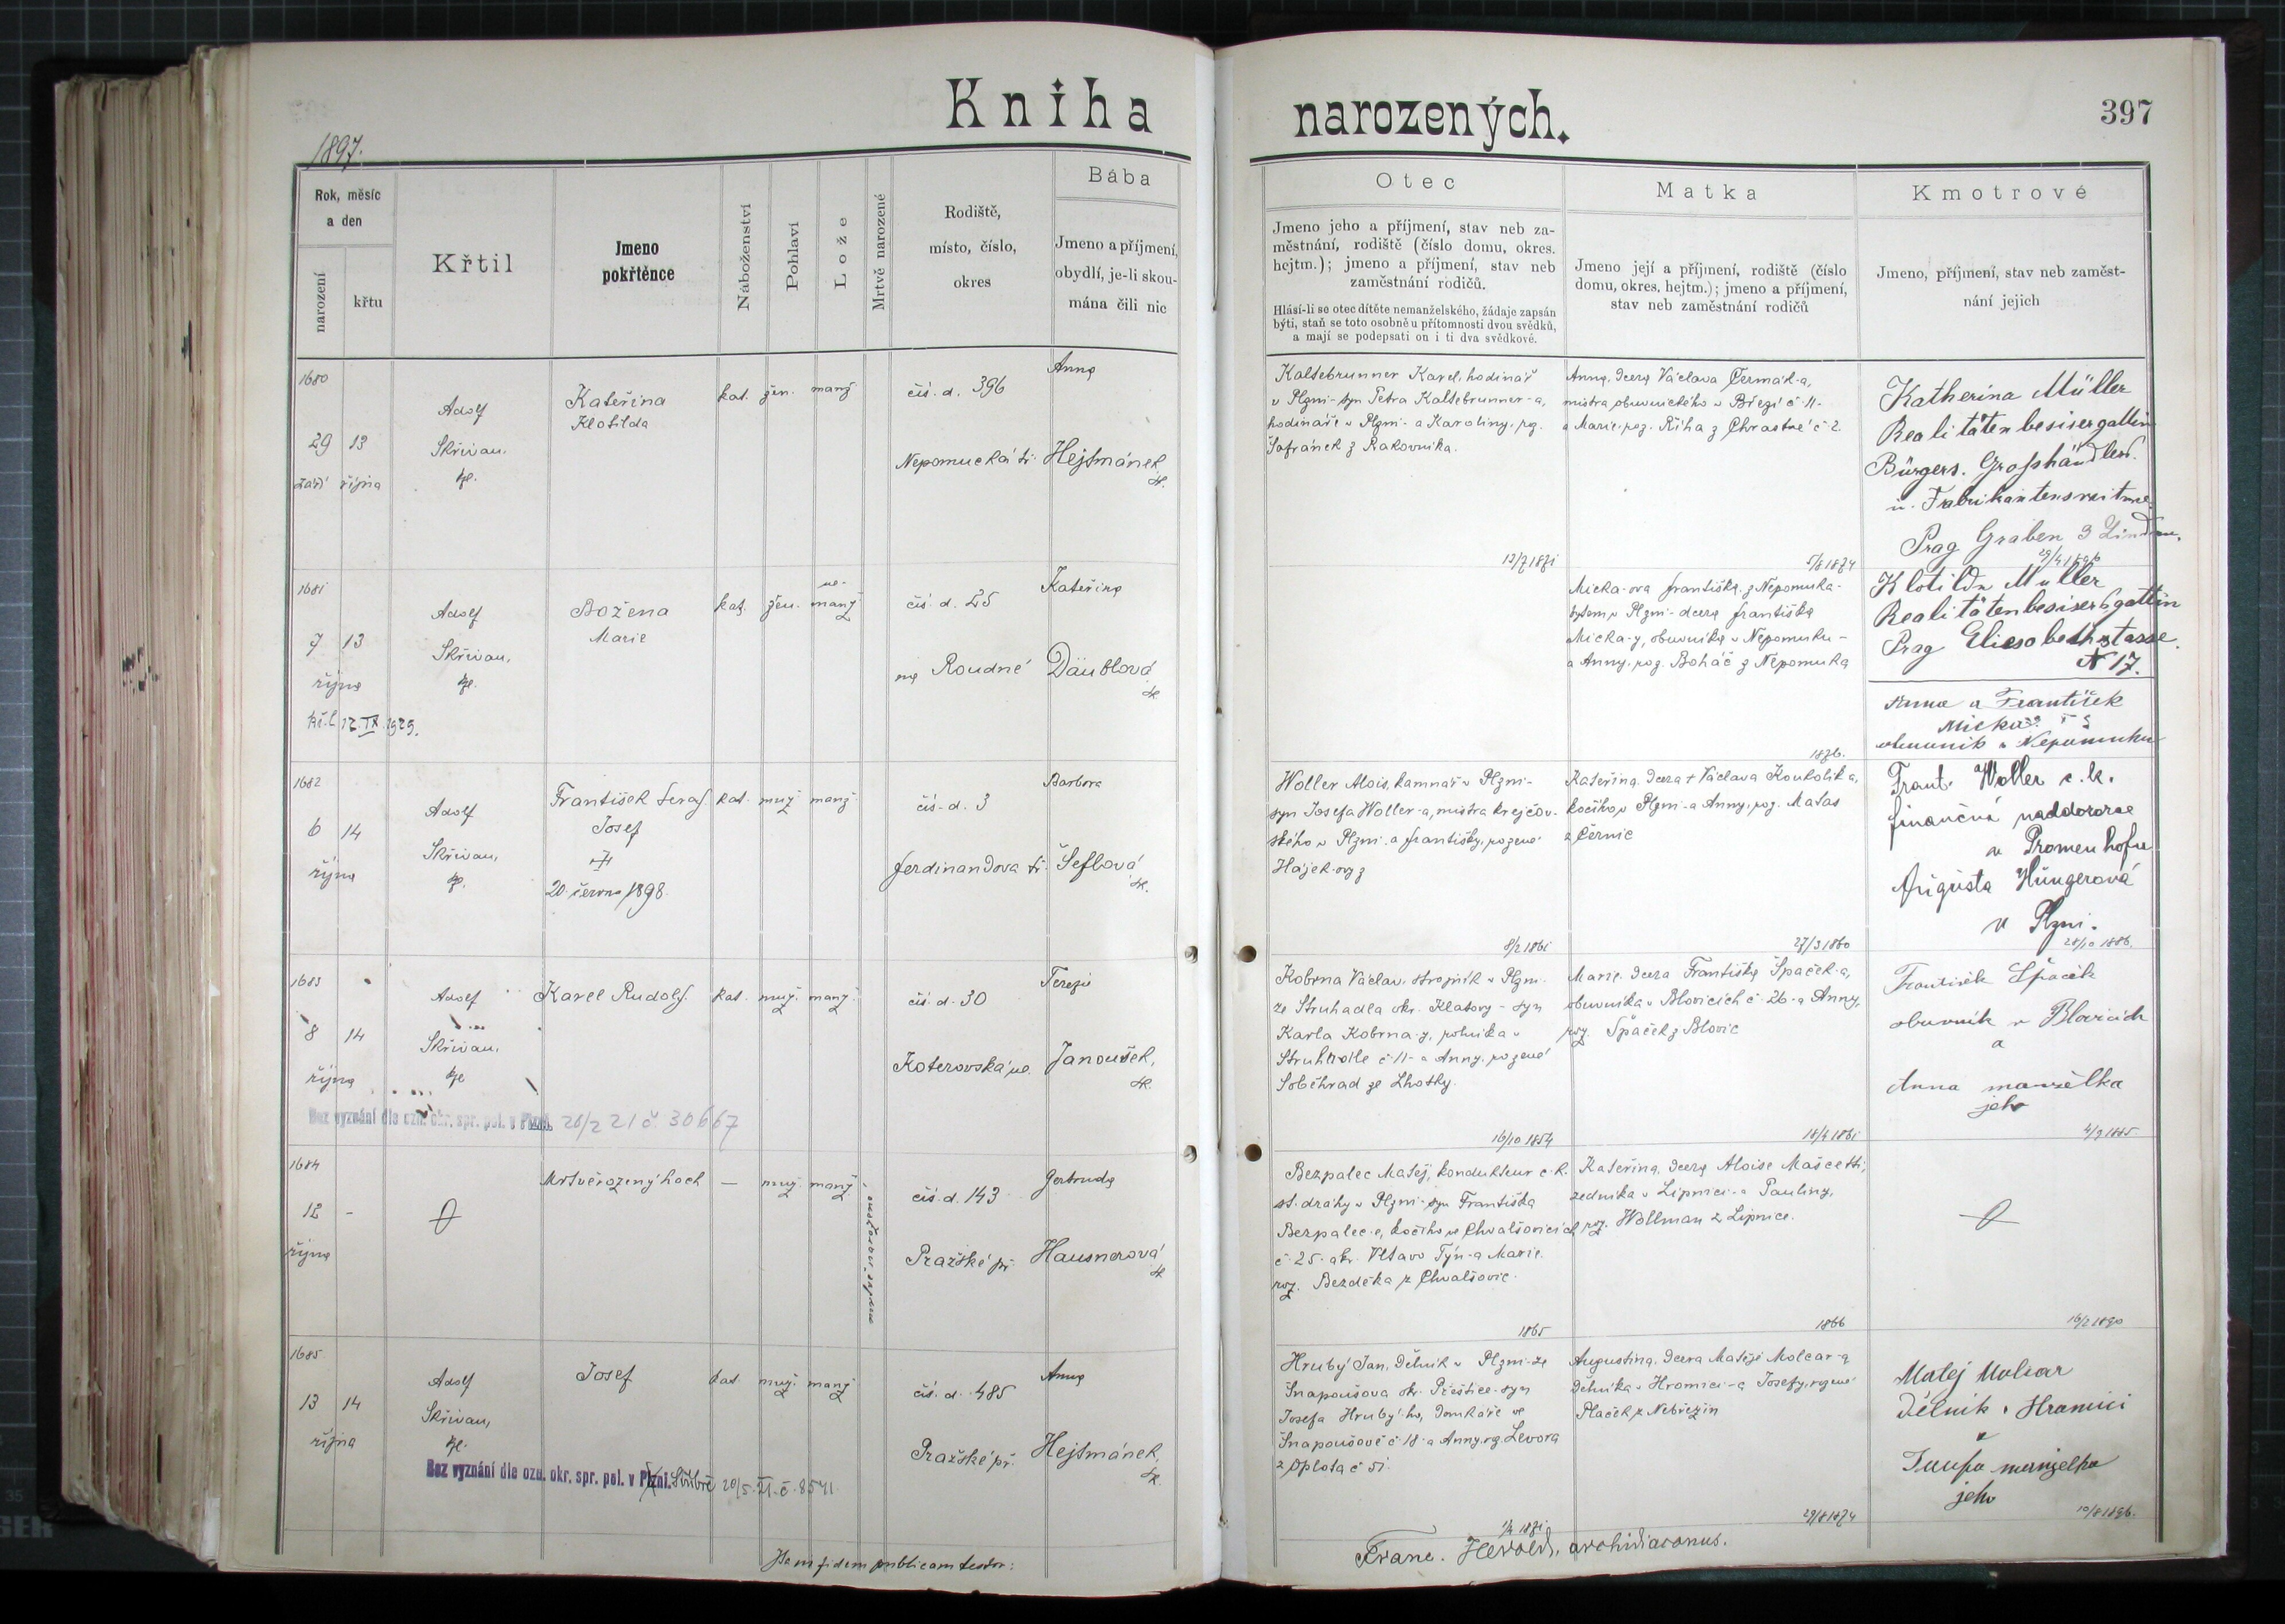 Kniha narozených.
397
1897.
Rok, měsíc
a den
narození
křtu
Křtil
Jmeno
pokřtěnce
Náboženství
Pohlaví
Lože
Mrtvě narozené
Rodiště,
místo, číslo,
okres
Bába
Jmeno a příjmení,
obydlí, je-li skou-
mána čili nic
Otec
Jmeno jeho a příjmení, stav neb za-
městnání, rodiště (číslo domu, okres.
hejtm.); jmeno a příjmení, stav neb
zaměstnání rodičů.
Hlásí-li se otec dítěte nemanželského, žádaje zapsán
býti, staň se toto osobně u přítomnosti dvou svědků,
a mají se podepsati on i ti dva svědkové.
Matka
Jmeno její a příjmení, rodiště (číslo
domu, okres, hejtm.); jmeno a příjmení,
stav neb zaměstnání rodičů
Kmotrové
Jmeno, příjmení, stav neb zaměst-
nání jejich
1680
29 13
září října
Adolf
Skřivan,
kpl.
Kateřina
Klotilda
kat. žen. manž
čís. d. 396
Nepomucká tř.
Anna
Hejtmánek,
zk.
Kaltebrunner Karel, hodinář
v Plzni-syn Petra Kaltebrunner-a,
hodináře v Plzni- a Karoliny, rz.
Šafránek z Rakovníka.
13/7 1871
Anna, dcera Václava Čermák-a,
mistra obuvnického v Březí č. 11-
a Marie, roz. Říha z Chrastné č. 2.
5/8 1874
Katherina Müller
Realitätenbesisergattin
Bürgers. Großhändlers.
u. Fabrikantens
Prag Graben 3
29/4 1896
Klotilda Müller
Realitätenbesisersgattin
Prag Eliesabethstasse.
N 17.
1681
7 13
října
kř. l. 12. IX. 1929.
Adolf
Skřivan,
kpl.
Božena
Marie
kat. žen. ne-
manž
čís. d. 25
na Roudné
Kateřina
Däublová
zk
Micka-ova Františka, z Nepomuka-
bytem v Plzni- dcera Františka
Micka-y, obuvníka v Nepomuku-
a Anny, roz. Boháč z Nepomuka
1876.
Anna a František
Micka
obuvník v Nepomuku
1682
6 14
října
Adolf
Skřivan,
kpl.
František Seraf.
Josef
20. června 1898.
kat. muž. manž.
čís. d. 3
Ferdinandova tř.
Barbora
Šeflová
zk.
Woller Alois, kamnář v Plzni-
syn Josefa Woller-a, mistra krejčov-
ského v Plzni- a Františky, rozené
Hájek-ovy z
8/2 1861
Kateřina, dcera + Václava Koukolík-a,
kočího v Plzni- a Anny, roz. Matas
z Černic
27/3 1860
Frant. Woller c. k.
finanční naddozorce
v Promenhofu
Augusta Hüngerová
v Plzni.
28/10 1886.
1683
8 14
října
Adolf
Skřivan,
kpl
Karel Rudolf.
kat. muž. manž.
čís. d. 30
Koterovská ul.
Terezie
Janoušek,
zk.
Bez vyznání dle ozn. okr. spr. pol. v Plzni. 26/2 21 č. 30667
Kobrna Václav, strojník v Plzni-
ze Struhadla okr. Klatovy - syn
Karla Kobrna-y, rolníka v
Struhadle č. 11- a Anny, rozené
Soběhrad ze Lhotky.
16/10 1854
Marie, dcera Františka Špaček-a,
obuvníka v Blovicích č. 26- a Anny,
roz. Špaček z Blovic
18/4 1861
František Špaček
obuvník v Blovicích
a
Anna manželka
jeho
4/9 1885
1684
12 -
října
Mrtvěrozený hoch
— muž. manž
čís. d. 143
Pražské př.
Gertruda
Hausnerová
zk
Bezpalec Matěj, kondukteur c. k.
st. dráhy v Plzni-syn Františka
Bezpalec-e, kočího ve Chvalšovicích
č. 25- okr. Vltavo Týn-a Marie
roz. Bezděka z Chvalšovic.
1865
Kateřina, dcera Aloise Mascetti,
zedníka v Lipnici- a Pauliny,
roz. Wollman z Lipnice.
1866
16/2 1890
1685
13 14
října
Adolf
Skřivan,
kpl.
Josef
kat. muž. manž
čís. d. 485
Pražské př.
Anna
Hejtmánek,
zk.
Bez vyznání dle ozn. okr. spr. pol. v Plzni. Stříbře 20/5.21.č.8541.
Hrubý Jan, dělník v Plzni-ze
Snapoušova okr. Přeštice-syn
Josefa Hrubý-ho, domkáře ve
Snapoušově č. 18- a Anny, rz. Levora
z Oplota č. 51.
1/4 1871
Augustina, dcera Matěje Molcar-a
dělníka v Hromici- a Josefy, rozené
Plaček z Nebřezin
29/8 1874
Matěj Molcar
dělník v Hromici
a
manželka
jeho
10/8 1896.
Ham fidem publicam testor:
Franc. Herold, archidiaconus.